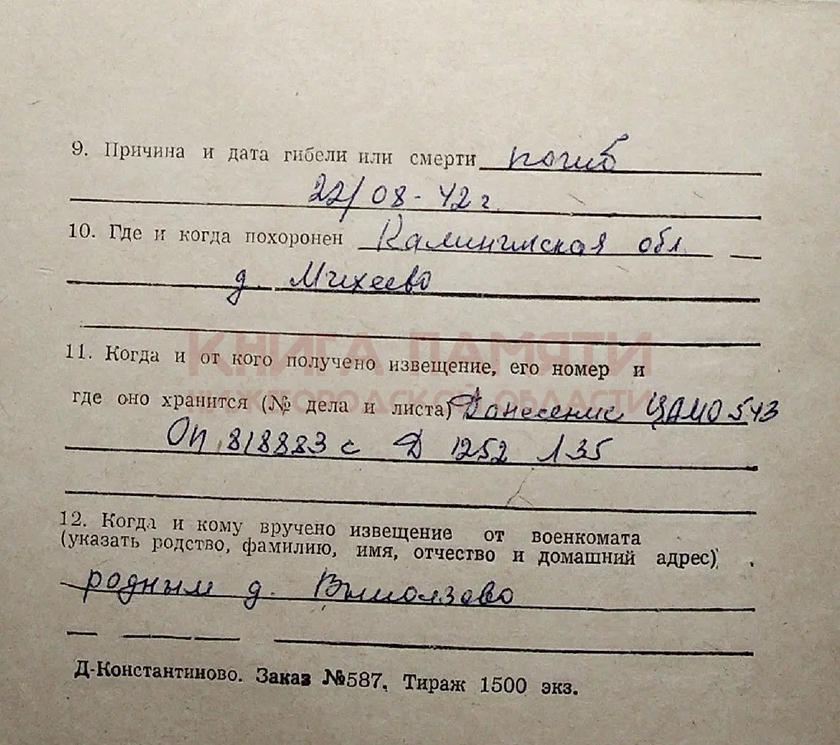 9. Причина и дата гибели или смерти погиб
22/08-42 г
10. Где и когда похоронен Калининская обл.
д. Михеево
КНИГА ПАМЯТИ
НИЖЕГОРОДСКОЙ ОБЛАСТИ
11. Когда и от кого получено извещение, его номер и
где оно хранится (№ дела и листа) Донесение ЦАМО 543
Оп 818883 с Д 1252 л 35
12. Когда и кому вручено извещение от военкомата
(указать родство, фамилию, имя, отчество и домашний адрес)
родным д.
Д-Константиново. Заказ №587. Тираж 1500 экз.